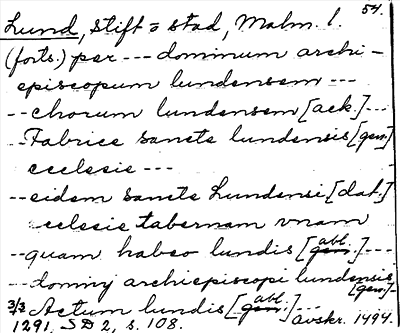 54.
Lund, stift o stad, Malm. l.
(forts.) per --- dominum archi-
episcopum lundensem ---
-- chorum lundensem [ack.]---
-- Fabrice sancte lundensis [gen]
ecclesie ---
-- eidem sancte Lundensi [dat.]
-- cclesie tabernam vnam
-- quam habeo lundis [gen. abl.]---
--- dominj archiepiscopi lundensis [gen]-
3/3 Actum lundis [gen. abl.]---
1291. SD 2, s. 108. Avskr. 1494.